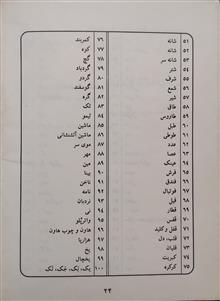 ۵۱ شانه
۵۲ شانه
۵۳ شانه سر
۵۴ شتر
۵۵ شرف
۵۶ شمع
۵۷ شیر
۵۸ طاق
۵۹ طاووس
۶۰ طبل
۶۱ طوطی
۶۲ عدد
۶۳ عصا
۶۴ عینک
۶۵ فرش
۶۶ فندق
۶۷ فوتبال
۶۸ فیل
۶۹ قطار
۷۰ قفس
۷۱ قفل و کلید
۷۲ قلب، دل
۷۳ قلیان
۷۴ کبریت
۷۵ کرکره
۷۶ کمربند
۷۷ کره
۷۸ گچ
۷۹ گردباد
۸۰ گردو
۸۱ گوسفند
۸۲ گره
۸۳ لک
۸۴ لیمو
۸۵ ماشین
۸۶ ماشین آتشنشانی
۸۷ موی سر
۸۸ مهر
۸۹ مین
۹۰ بینا
۹۱ ناخن
۹۲ نامه
۹۳ نردبان
۹۴ نی
۹۵ واترپلو
۹۶ هاون و چوب هاون
۹۷ هزارپا
۹۸ یخ
۹۹ یخچال
۱۰۰ یک، بک، جک، لک
۲۲